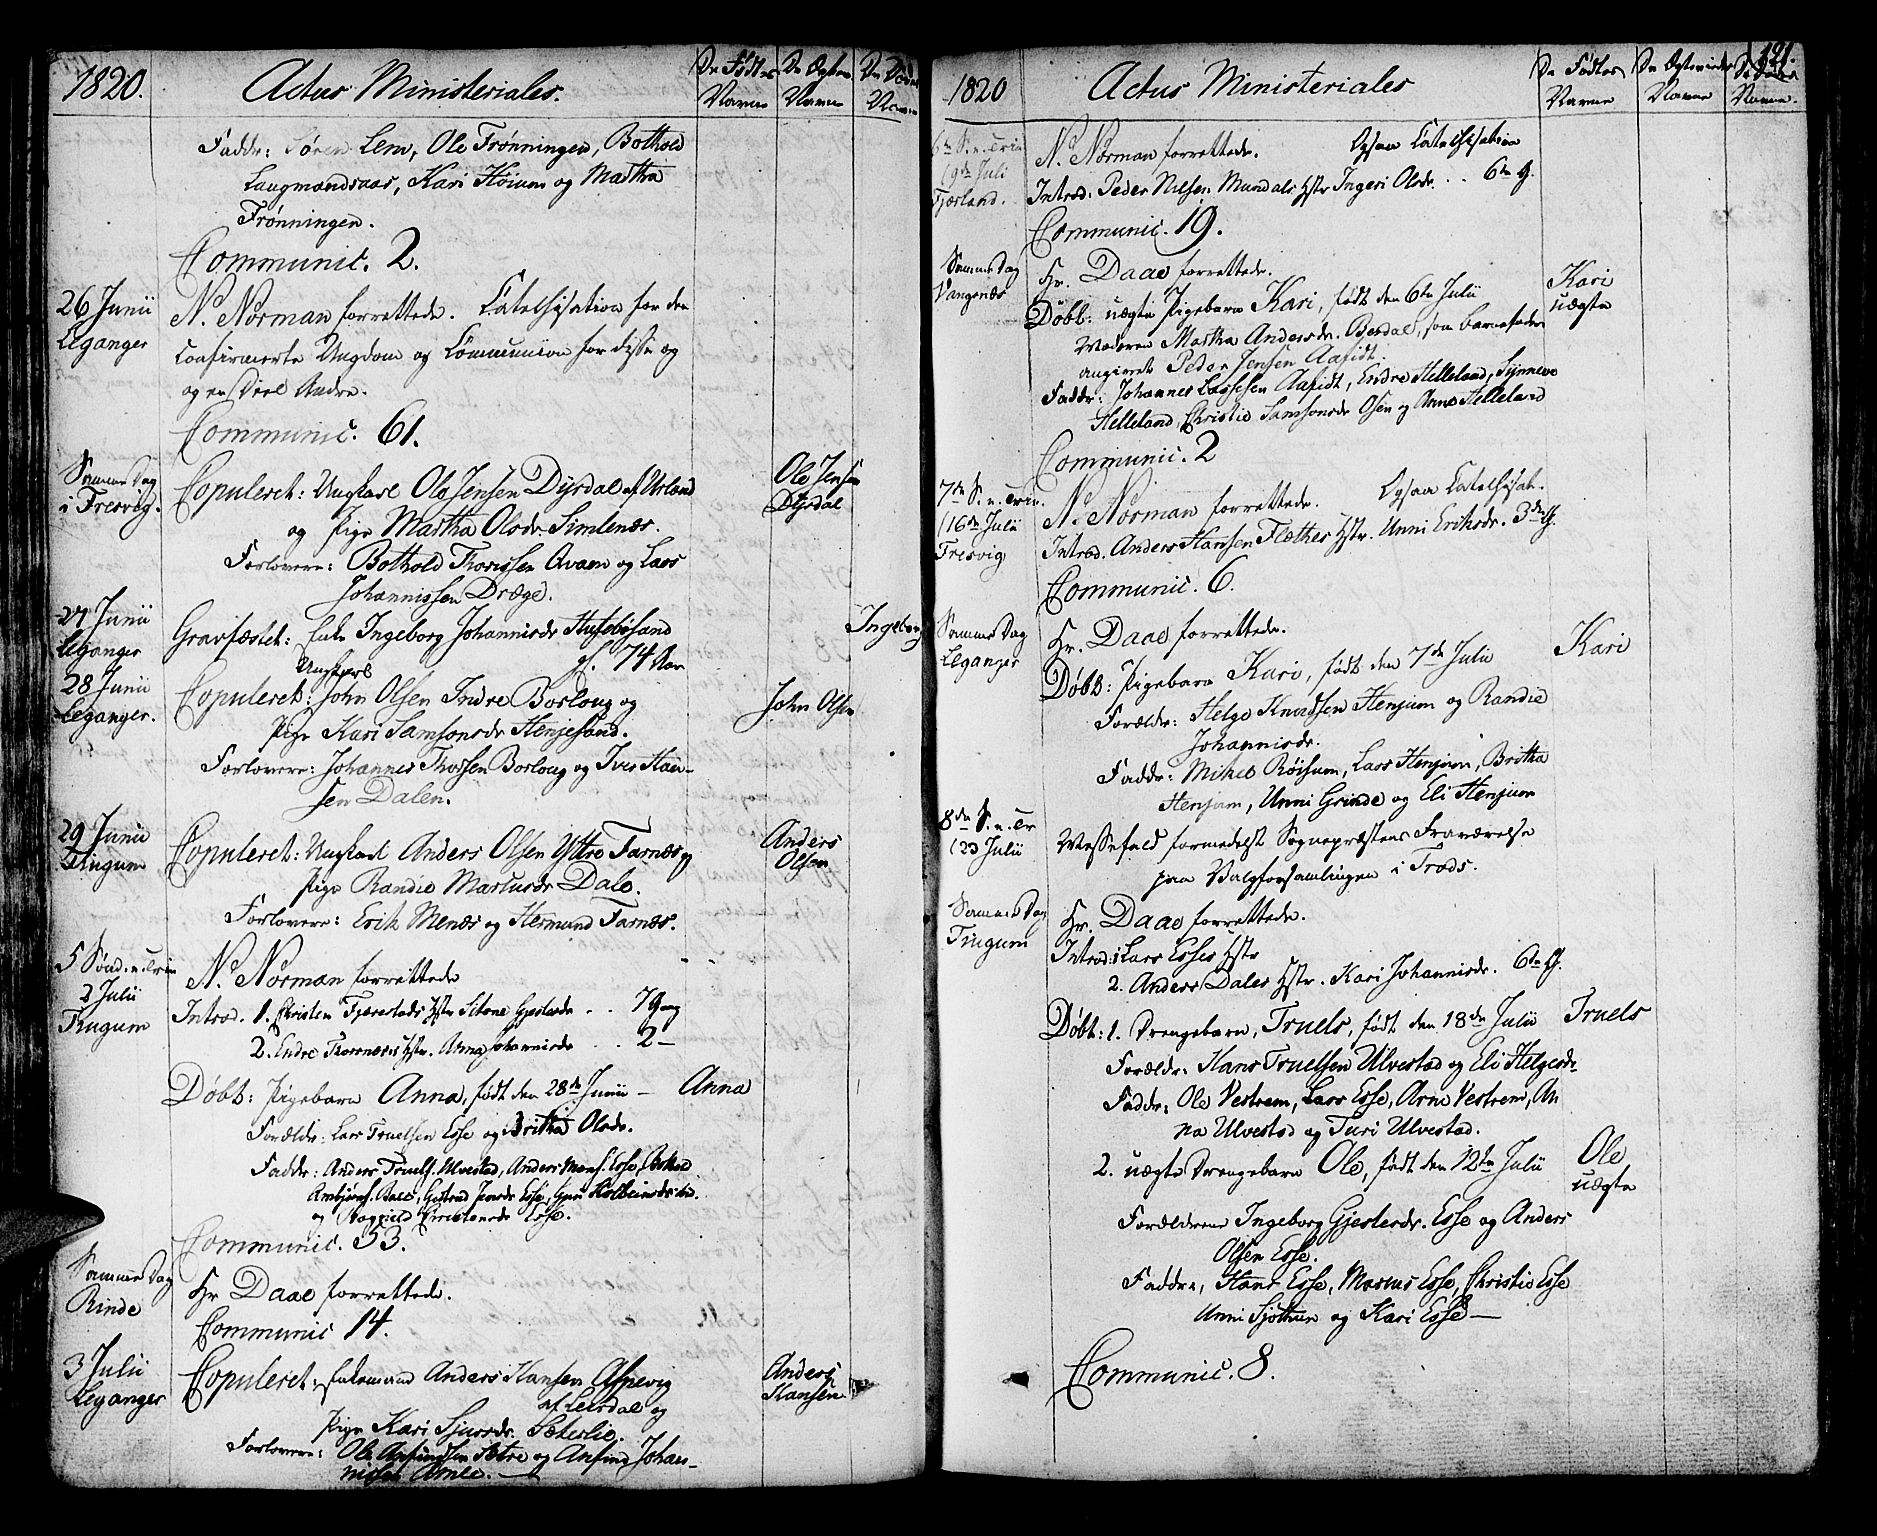 1820. Actus Ministeriales. De Fødtes Navne De Ægtev. Navne De Dødes Navne
Faddr: Søren Lem, Ole Frønningen, Bothold
Laugmandsaas, Kari Høium og Martha
Frønningen.
Communic. 2.
26 Junii Leganger
N. Norman forrettede. Catechisation for den
confirmerte Ungdom og Communion for disse og
og en Deel Andre.
Communic. 61.
Samme Dag i Fresvig.
Copuleret: Ungkarl Ole Jensen Dyrdal af Urland Ole Jensen Dyrdal
og Pige Martha Olsdr. Simlenæs.
Forlovere: Bothold Thorissen Qvam og Lars
Johannissen Dræge.
27 Junii Leganger
Gravfæstet: Enke Ingeborg Johannisdr Husebøsand Ingeborg
gl. 74 Aar
28 Junii Leganger.
Ungkarl
Copuleret: John Olsen Indre Borloug og John Olsen
Pige Kari Samsonsdr Henjesand.
Forlovere: Johannes Thorsen Borloug og Iver Han-
sen Dalen.
29 Junii Tingum
Copuleret: Ungkarl Anders Olsen Yttre Farnæs og Anders Olsen
Pige Randie Marcusdr Dale.
Forlovere: Erik Menæs og Hermund Farnæs.
5 Sønd. n. Trin 2 Julii Tingum
N. Norman forrettede
Introd. 1. Christen Fjærestads Hstr Sitone Gjestsdr . . 7 Gang
2. Endre Thornæs's Hstr. Anna Johannisdr . . 2 —
Døbt: Pigebarn Anna, født den 28de Junii — Anna
Forældr: Lars Truelsen Esse og Britha Olsdr.
Faddr: Anders Truels. Ulvestad, Anders Mons. Esse,
og Christensdr Esse.
Communic. 53.
Samme Dag Rinde
Hr Daae forrettede.
Communic 14.
3 Julii Leganger
Copuleret: Enkemand Anders Hansen Aspevig Anders Hansen
af Leirdal og
Pige Kari Sjursdr. Sæterlie.
Forlovere: Ole Anfindsen Sætre og Anfind Johan-
nissen Amle. —
1820 Actus Ministeriales De Fødtes Navne De Ægtevieedes Navne De Dødes Navne. 121.
6te S. n. Trin (9de Juli Fjærland.
N. Norman forrettede. Ogsaa Catechisation
Introd: Peder Nilsen Mundals Hstr Ingeri Olsdr. . . 6te G.
Communic. 19.
Samme Dag Vangenæs
Hr. Daae forrettede.
Døbt: uægte Pigebarn Kari, født den 6te Julii Kari uægte
Moderen Martha Andersdr. Berdal, som Barnefader
angivet Peder Jensen Aafidt.
Faddr: Johannes Lassesen Aafidt, Endre Helleland, Synneve
Helleland, Christie Samsonsdr Osen og Arne Helleland
Communic. 2
7de S. n. Trin. (16de Julii Fresvig
N. Norman forrettede. Ogsaa Catechisat.
Introd. Anders Hansen Flæthes Hstr. Unni Eriksdr. 3de G.
Communic. 6.
Samme Dag Leganger
Hr. Daae forrettede.
Døbt: Pigebarn Kari, født den 7de Julii Kari
Forældr: Helge Knudsen Henjum og Randie
Johannisdr.
Faddr: Mikel Røisum, Lars Henjum, Britha
Henjum, Unni Grinde og Eli Henjum
8de S. n. Tr (23 Julii
Messefald formedelst Sognepræstens Fraværelse
paa Valgforsamlingen i Træds.
Samme Dag Tingum
Hr. Daae forrettede.
Introd: 1 Lars Esses Hstr
2. Anders Dales Hstr. Kari Johannisdr. 6te G.
Døbt: 1. Drengebarn, Truels, født den 18de Julii Truels
Forældr: Hans Truelsen Ulvestad og Eli Helgesdr.
Faddr: Ole Vestrem, Lars Esse, Arne Vestrem, An
na Ulvestad og Turi Ulvestad.
2. uægte Drengebarn Ole, født den 12te Julii Ole uægte
Forældrene Ingeborg Gjestsdr. Esse og Anders
Olsen Esse.
Faddre, Hans Esse, Marcus Esse, Christie Esse
Unni Sjøthun og Kari Esse —
Communic. 8.